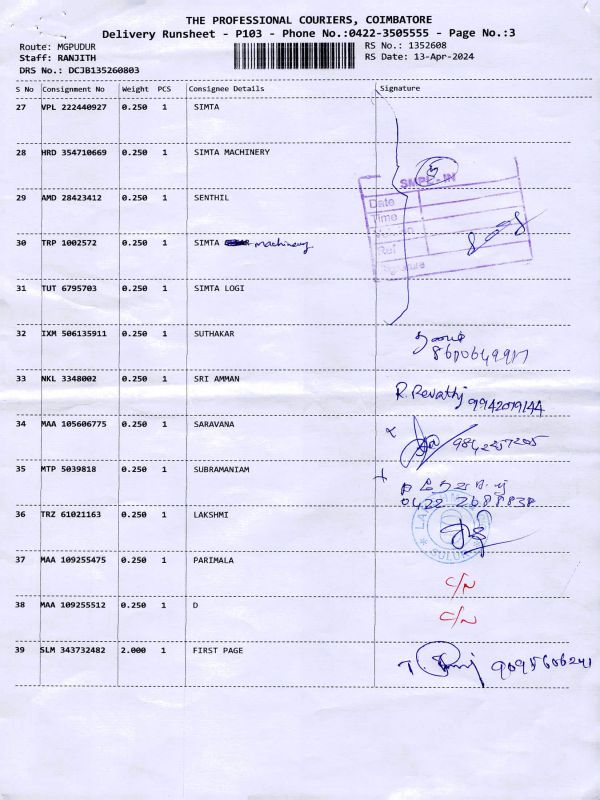 THE PROFESSIONAL COURIERS, COIMBATORE
Delivery Runsheet - P103 - Phone No.:0422-3505555 - Page No.:3
Route: MGPUDUR RS No.: 1352608
Staff: RANJITH RS Date: 13-Apr-2024
DRS No.: DCJB135260803
S No Consignment No Weight PCS Consignee Details Signature
27 VPL 222440927 0.250 1 SIMTA
28 HRD 354710669 0.250 1 SIMTA MACHINERY
5
29 AMD 28423412 0.250 1 SENTHIL
Date
Time
30 TRP 1002572 0.250 1 SIMTA machinery
31 TUT 6795703 0.250 1 SIMTA LOGI
32 IXM 506135911 0.250 1 SUTHAKAR
33 NKL 3348002 0.250 1 SRI AMMAN
R. Revathy 9942019144
34 MAA 105606775 0.250 1 SARAVANA
9842257205
35 MTP 5039818 0.250 1 SUBRAMANIAM
0422 2688838
36 TRZ 61021163 0.250 1 LAKSHMI
SULUR
37 MAA 109255475 0.250 1 PARIMALA
C/N
38 MAA 109255512 0.250 1 D
C/N
39 SLM 343732482 2.000 1 FIRST PAGE
9095606241